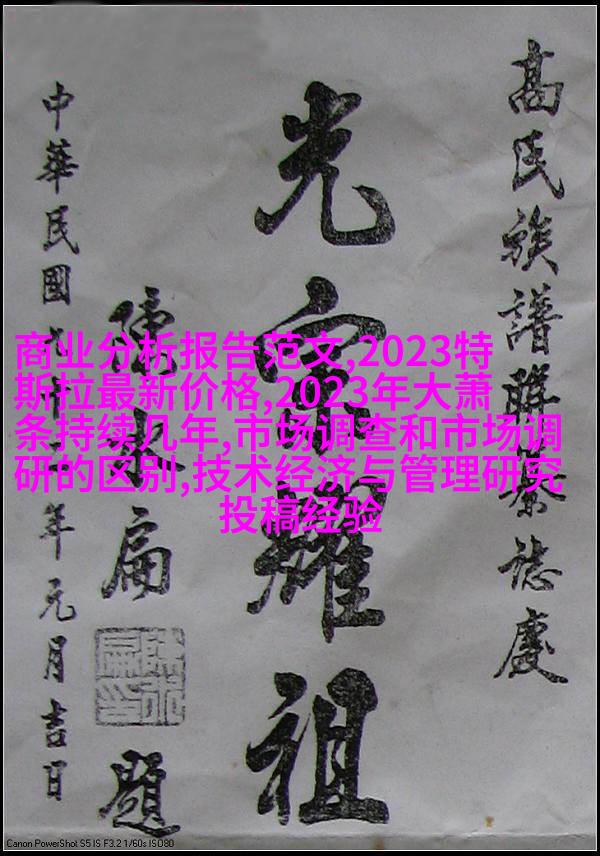 高氏族譜聯誌慶
光宗耀祖
陳水扁
陳水扁印
題
中華民國十年元月吉日
商业分析报告范文,2023特
斯拉最新价格,2023年大萧
条持续几年,市场调查和市场调
研的区别,技术经济与管理研究
投稿经验
Canon PowerShot S5 IS F3.2 1/60s ISO80